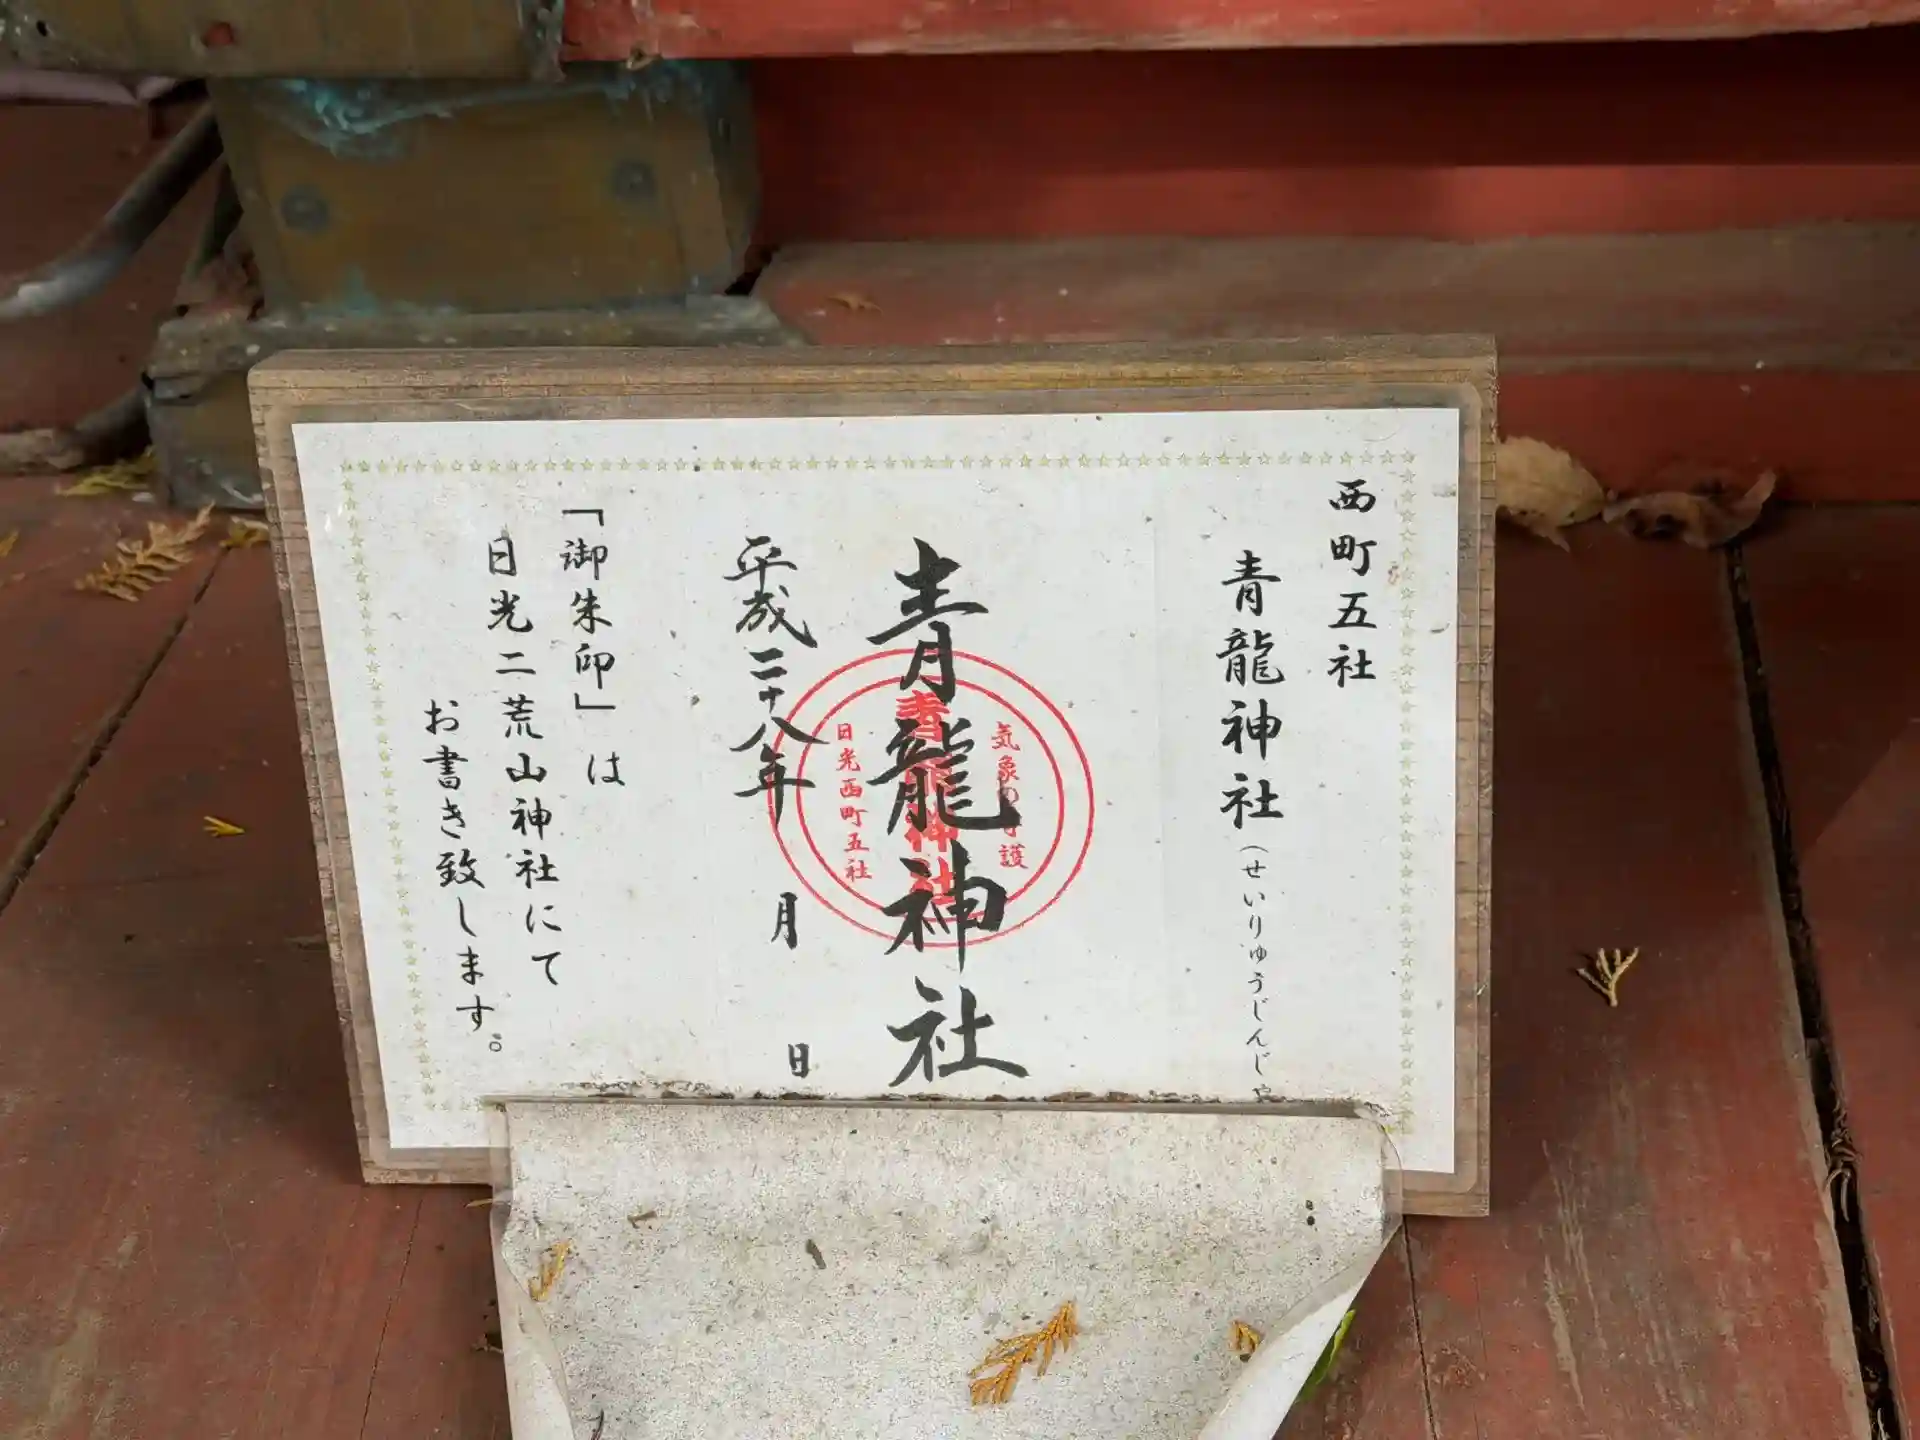 西町五社
青龍神社(せいりゅうじんじゃ
青龍神社
気象の守護
青龍神社
日光西町五社
平成二十八年 月 日
「御朱印」は
日光二荒山神社にて
お書き致します。